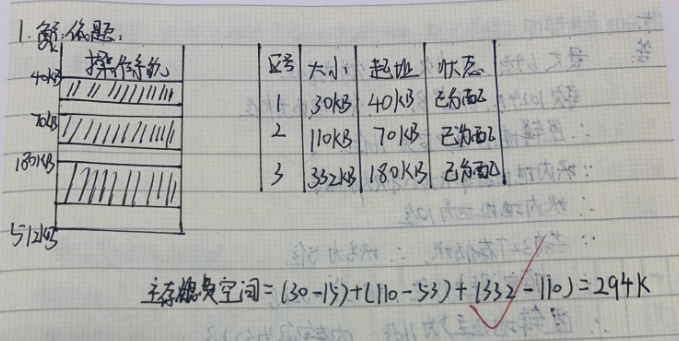 1. 解答题:
0K
操作系统
40KB
70KB
180KB
512KB
区号 大小 起址 状态
1 30KB 40KB 已分配
2 110KB 70KB 已分配
3 332KB 180KB 已分配
主存浪费空间=(30-15)+(110-53)+(332-110)=294K